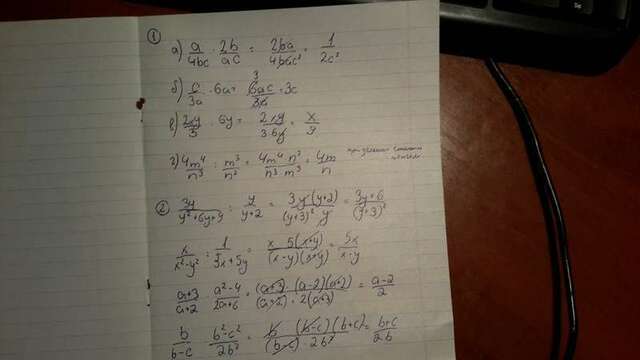 ①
а) a/4bc · 2b/ac = 2ba/4bac² = 1/2c²
б) c/3a · 6a = 6ac/3a = 3c
в) 2xy/3 · 6y = 2xy/3·6y = x/9
г) 4m⁴/n³ : m³/n² = 4m⁴ n²/n³ m³ = 4m/n при
② 3y/y²+6y+9 : y/y+2 = 3y·(y+2)/(y+3)² y = 3y+6/(y+3)²
x/x²-y² : 1/5x+5y = x · 5(x+y)/(x-y)(x+y) = 5x/x-y
a+3/a+2 · a²-4/2a+6 = (a+3)·(a-2)(a+2)/(a+2)·2(a+3) = a-2/2
b/b-c · b²-c²/2b² = b (b-c)(b+c)/(b-c) 2b² = b+c/2b